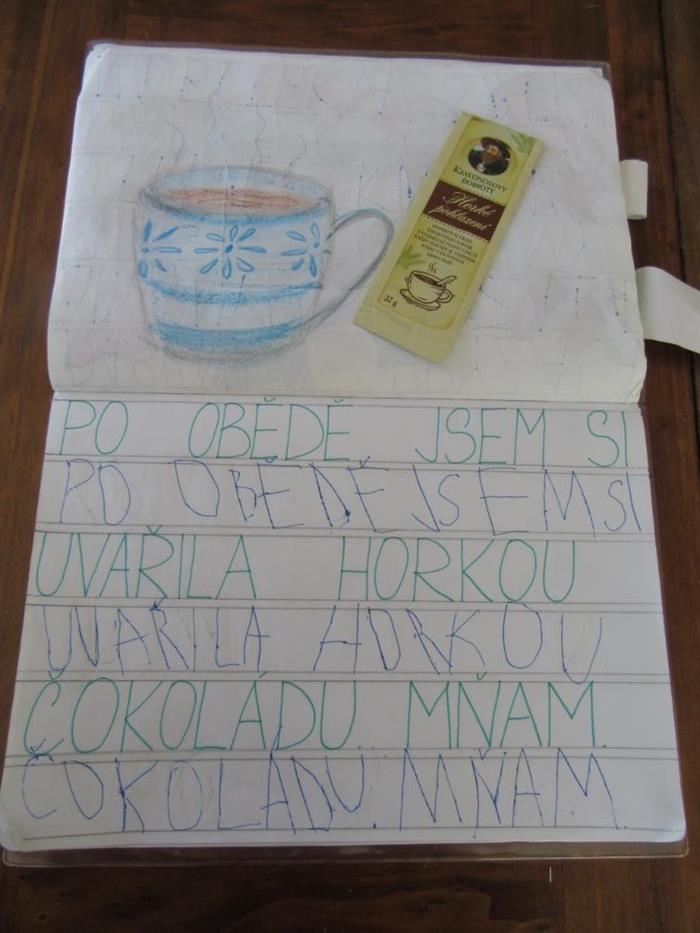 KRAKONOŠOVY
DOBROTY
Horké
pohlazení
32 g
PO OBĚDĚ JSEM SI
PO OBĚDĚ JSEM SI
UVAŘILA HORKOU
UVAŘILA HORKOU
ČOKOLÁDU. MŇAM.
ČOKOLÁDU. MŇAM.